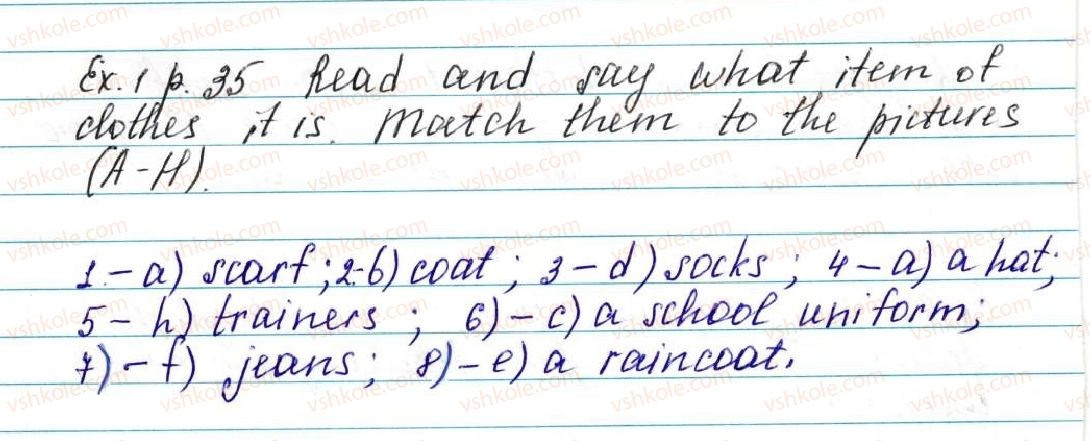 Ex. 1 p. 35 Read and say what item of
clothes it is. Match them to the pictures
(A-H).
1 - a) scarf; 2-b) coat; 3 - d) socks; 4 - a) a hat;
5 - h) trainers; 6) - c) a school uniform;
7) - f) jeans; 8) - e) a raincoat.